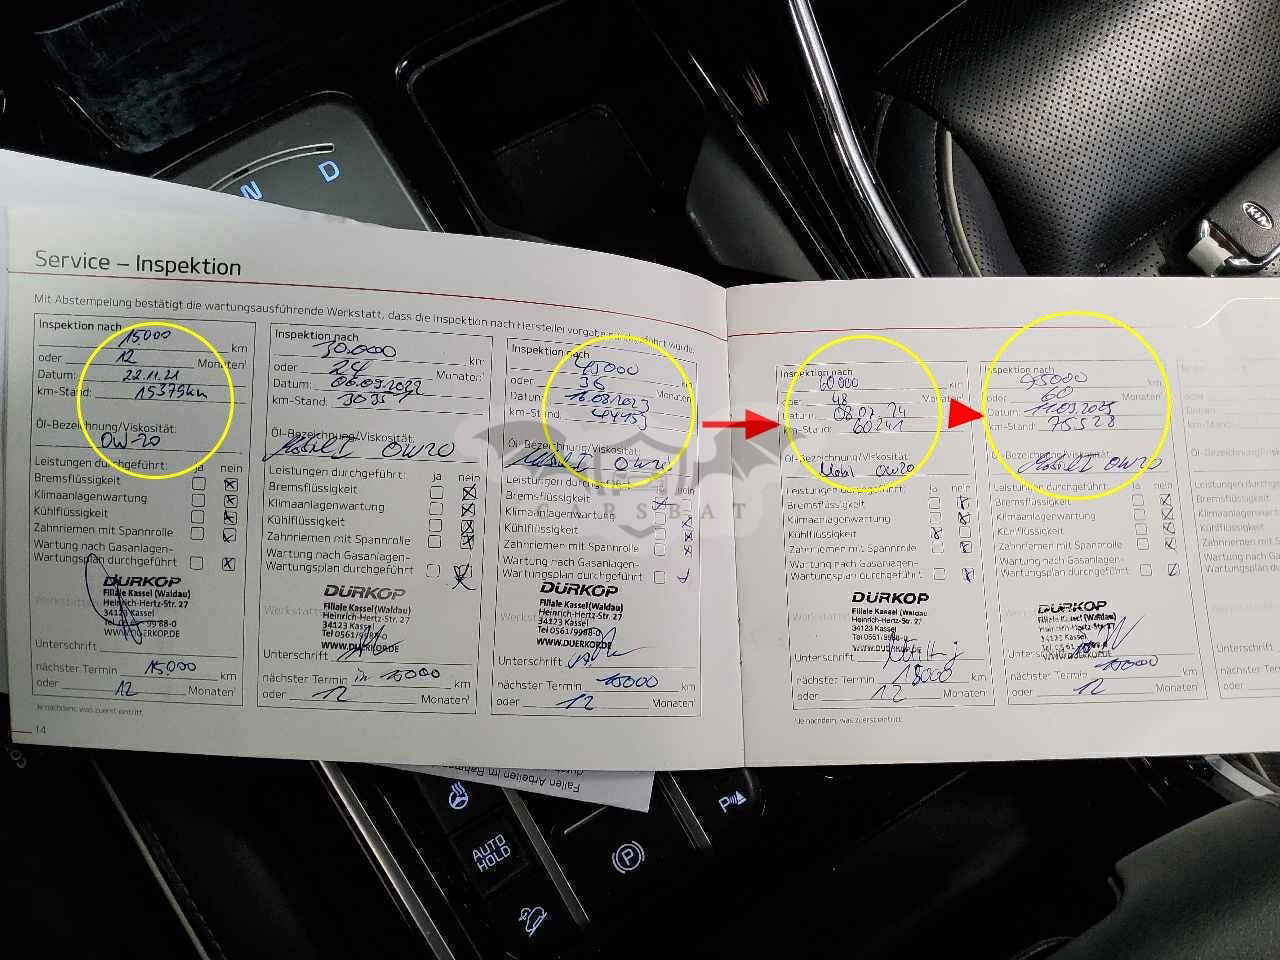 N
D
KIA
Service – Inspektion
Mit Abstempelung bestätigt die wartungsausführende Werkstatt, dass die Inspektion nach Hersteller
Inspektion nach 15000 km
oder 12 Monaten¹
Datum: 22.11.21
km-Stand: 15375km
Öl-Bezeichnung/Viskosität:
0W-20
Leistungen durchgeführt: ja nein
Bremsflüssigkeit
Klimaanlagenwartung
Kühlflüssigkeit
Zahnriemen mit Spannrolle
Wartung nach Gasanlagen-
Wartungsplan durchgeführt
DÜRKOP
Filiale Kassel (Waldau)
Heinrich-Hertz-Str. 27
34123 Kassel
WWW.DUERKOP.DE
Unterschrift
nächster Termin 15.000 km
oder 12 Monaten¹
¹Je nachdem, was zuerst eintritt.
14
Inspektion nach 30.000 km
oder 24 Monaten¹
Datum: 06.09.2022
km-Stand:
Öl-Bezeichnung/Viskosität:
Mobil 1 0W20
Leistungen durchgeführt: ja nein
Bremsflüssigkeit
Klimaanlagenwartung
Kühlflüssigkeit
Zahnriemen mit Spannrolle
Wartung nach Gasanlagen-
Wartungsplan durchgeführt
DÜRKOP
Filiale Kassel (Waldau)
Heinrich-Hertz-Str. 27
34123 Kassel
Tel 0561/9988-0
WWW.DUERKOP.DE
Unterschrift
nächster Termin in 15000 km
oder 12 Monaten¹
Inspektion nach 45000 km
oder 36 Monaten¹
Datum: 16.08.2023
km-Stand:
Öl-Bezeichnung/Viskosität:
Mobil 1 0W20
Leistungen durchgeführt: ja nein
Bremsflüssigkeit
Klimaanlagenwartung
Kühlflüssigkeit
Zahnriemen mit Spannrolle
Wartung nach Gasanlagen-
Wartungsplan durchgeführt
DÜRKOP
Filiale Kassel (Waldau)
Heinrich-Hertz-Str. 27
34123 Kassel
Tel 0561/9988-0
WWW.DUERKOP.DE
Unterschrift
nächster Termin 15000 km
oder 12 Monaten¹
CARSBAT
Inspektion nach 60000 km
oder 48 Monaten¹
Datum 08.07.24
km-Stand: 60241
Öl-Bezeichnung/Viskosität:
Mobil 0W20
Leistungen durchgeführt: ja nein
Bremsflüssigkeit
Klimaanlagenwartung
Kühlflüssigkeit
Zahnriemen mit Spannrolle
Wartung nach Gasanlagen-
Wartungsplan durchgeführt
DÜRKOP
Filiale Kassel (Waldau)
Heinrich-Hertz-Str. 27
34123 Kassel
Tel 0561/9988-0
WWW.DUERKOP.DE
Unterschrift
nächster Termin 15000 km
oder 12 Monaten¹
¹Je nachdem, was zuerst eintritt.
Inspektion nach 75000 km
oder 60 Monaten¹
Datum: 11.09.2025
km-Stand: 75528
Öl-Bezeichnung/Viskosität:
Mobil 1 0W20
Leistungen durchgeführt: ja nein
Bremsflüssigkeit
Klimaanlagenwartung
Kühlflüssigkeit
Zahnriemen mit Spannrolle
Wartung nach Gasanlagen-
Wartungsplan durchgeführt
DÜRKOP
Filiale Kassel (Waldau)
Heinrich-Hertz-Str. 27
34123 Kassel
Unterschrift
nächster Termin 15000 km
oder 12 Monaten¹
Datum:
km-Stand:
Leistungen
Bremsflüssigkeit
Klimaanlagenwartung
Kühlflüssigkeit
Zahnriemen mit
Wartung nach
Wartungsplan
Werkstatt
Unterschrift
nächster Termin
oder
Fallen Arbeiten im Rahmen
AUTO
HOLD
P
P